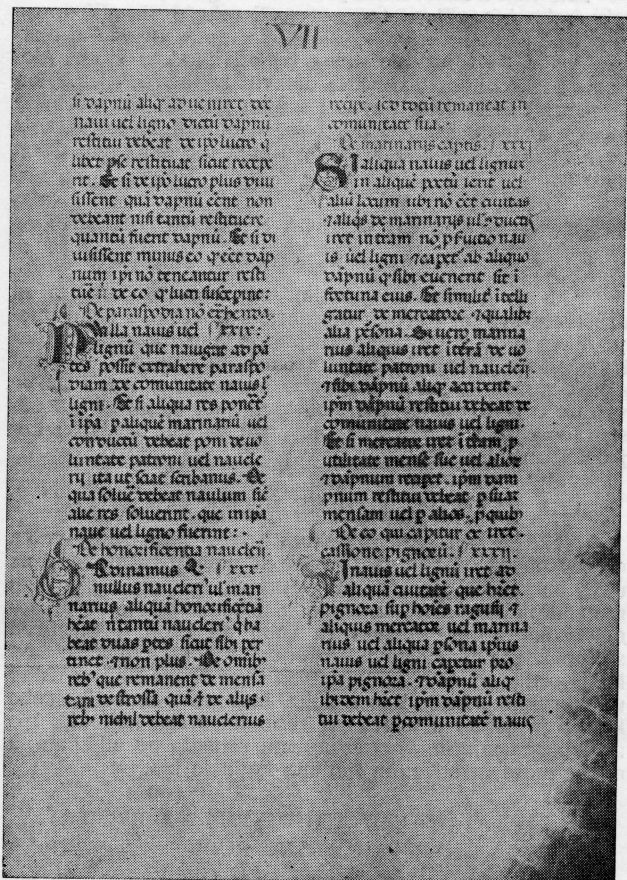 VII
si dāpnū aliq̄ adveniret dce
navi vel ligno dictū dāpnū
restitui debeat de ip̄o lucro q̄
libet p̄se restituat sicut recepe
rit. Et si de ip̄o lucro plus divi
sissent quā dāpnū eēnt non
debeant nisi tantū restituere
quantū fuerit dāpnū. Et si di
visissent minus eo q̄ eēt dāp
num ip̄i nō teneantur resti
tuē n̄ de eo q̄ lucri susceperint:
De paraspodia nō exthenda.
Nulla navis vel XXIX:
lignū que navigat ad pa
tes possit extrahere paraspo
diam de comunitate navis l̄
ligni. Et si aliqua res ponēt
ī ip̄a p aliquē marinariū vel
conductū debeat poni de vo
luntate patroni vel naucle
rii ita ut sciat scribanus. De
qua solvē debeat naulum sic̄
alie res solverint. que in ip̄a
nave vel ligno fuerint:
De honorificentia nauclerii.
Ordinamus XXX
nullus nauclerī vl mari
narius aliquā honorificētiā
hēat n̄ tantū nauclerī q̄ ha
beat duas ptes sicut sibi per
tinet ⁊ non plus. De omib;
reb; que remanent de mensa
tam de strossa quā ⁊ de aliis
reb; nichil debeat nauclerius
recipe. sed totū remaneat in
comunitate sua.
De marinariis captis. XXXI
SI aliqua navis vel lignū
in aliquē portū ierit vel
aliū locum ubi nō eēt civitas
⁊ aliq̄s de marinariis vl̄ 9ductis
iret in terram nō p̄ servitio nav
is vel ligni ⁊ capet̄ ab aliquo
dāpnū q̄ sibi evenerit sit ī
fortuna eius. Et similit̄ ītelli
gatur de mercatore ⁊ qualibȝ
alia p̄sona. Si vero marina
rius aliquis iret ī t̄rā de vo
luntate patroni vel nauclerii
⁊ sibi dāpnū aliq̄ accident.
ip̄m dāpnū restitui debeat de
comunitate navis vel ligni.
Et si mercator iret ī t̄ram p̄
utilitate mense sue vel alior
⁊ dāpnum recipet. ip̄m dam
pnum restitui debeat p̄ suam
mensam vel p̄ alios. p̄ quib;
De eo qui capitur
pignorū. XXXII.
Si navis vel lignū iret ad
aliquā civitatē que hēret
pignora sup̄ hoīes ragusii ⁊
aliquis mercator vel marina
rius vel aliqua p̄sona ip̄ius
navis vel ligni capetur pro
ip̄a pignora. ⁊ dāpnū aliq̄
ibidem hēret ip̄m dāpnū resti
tui debeat p comunitatē navis